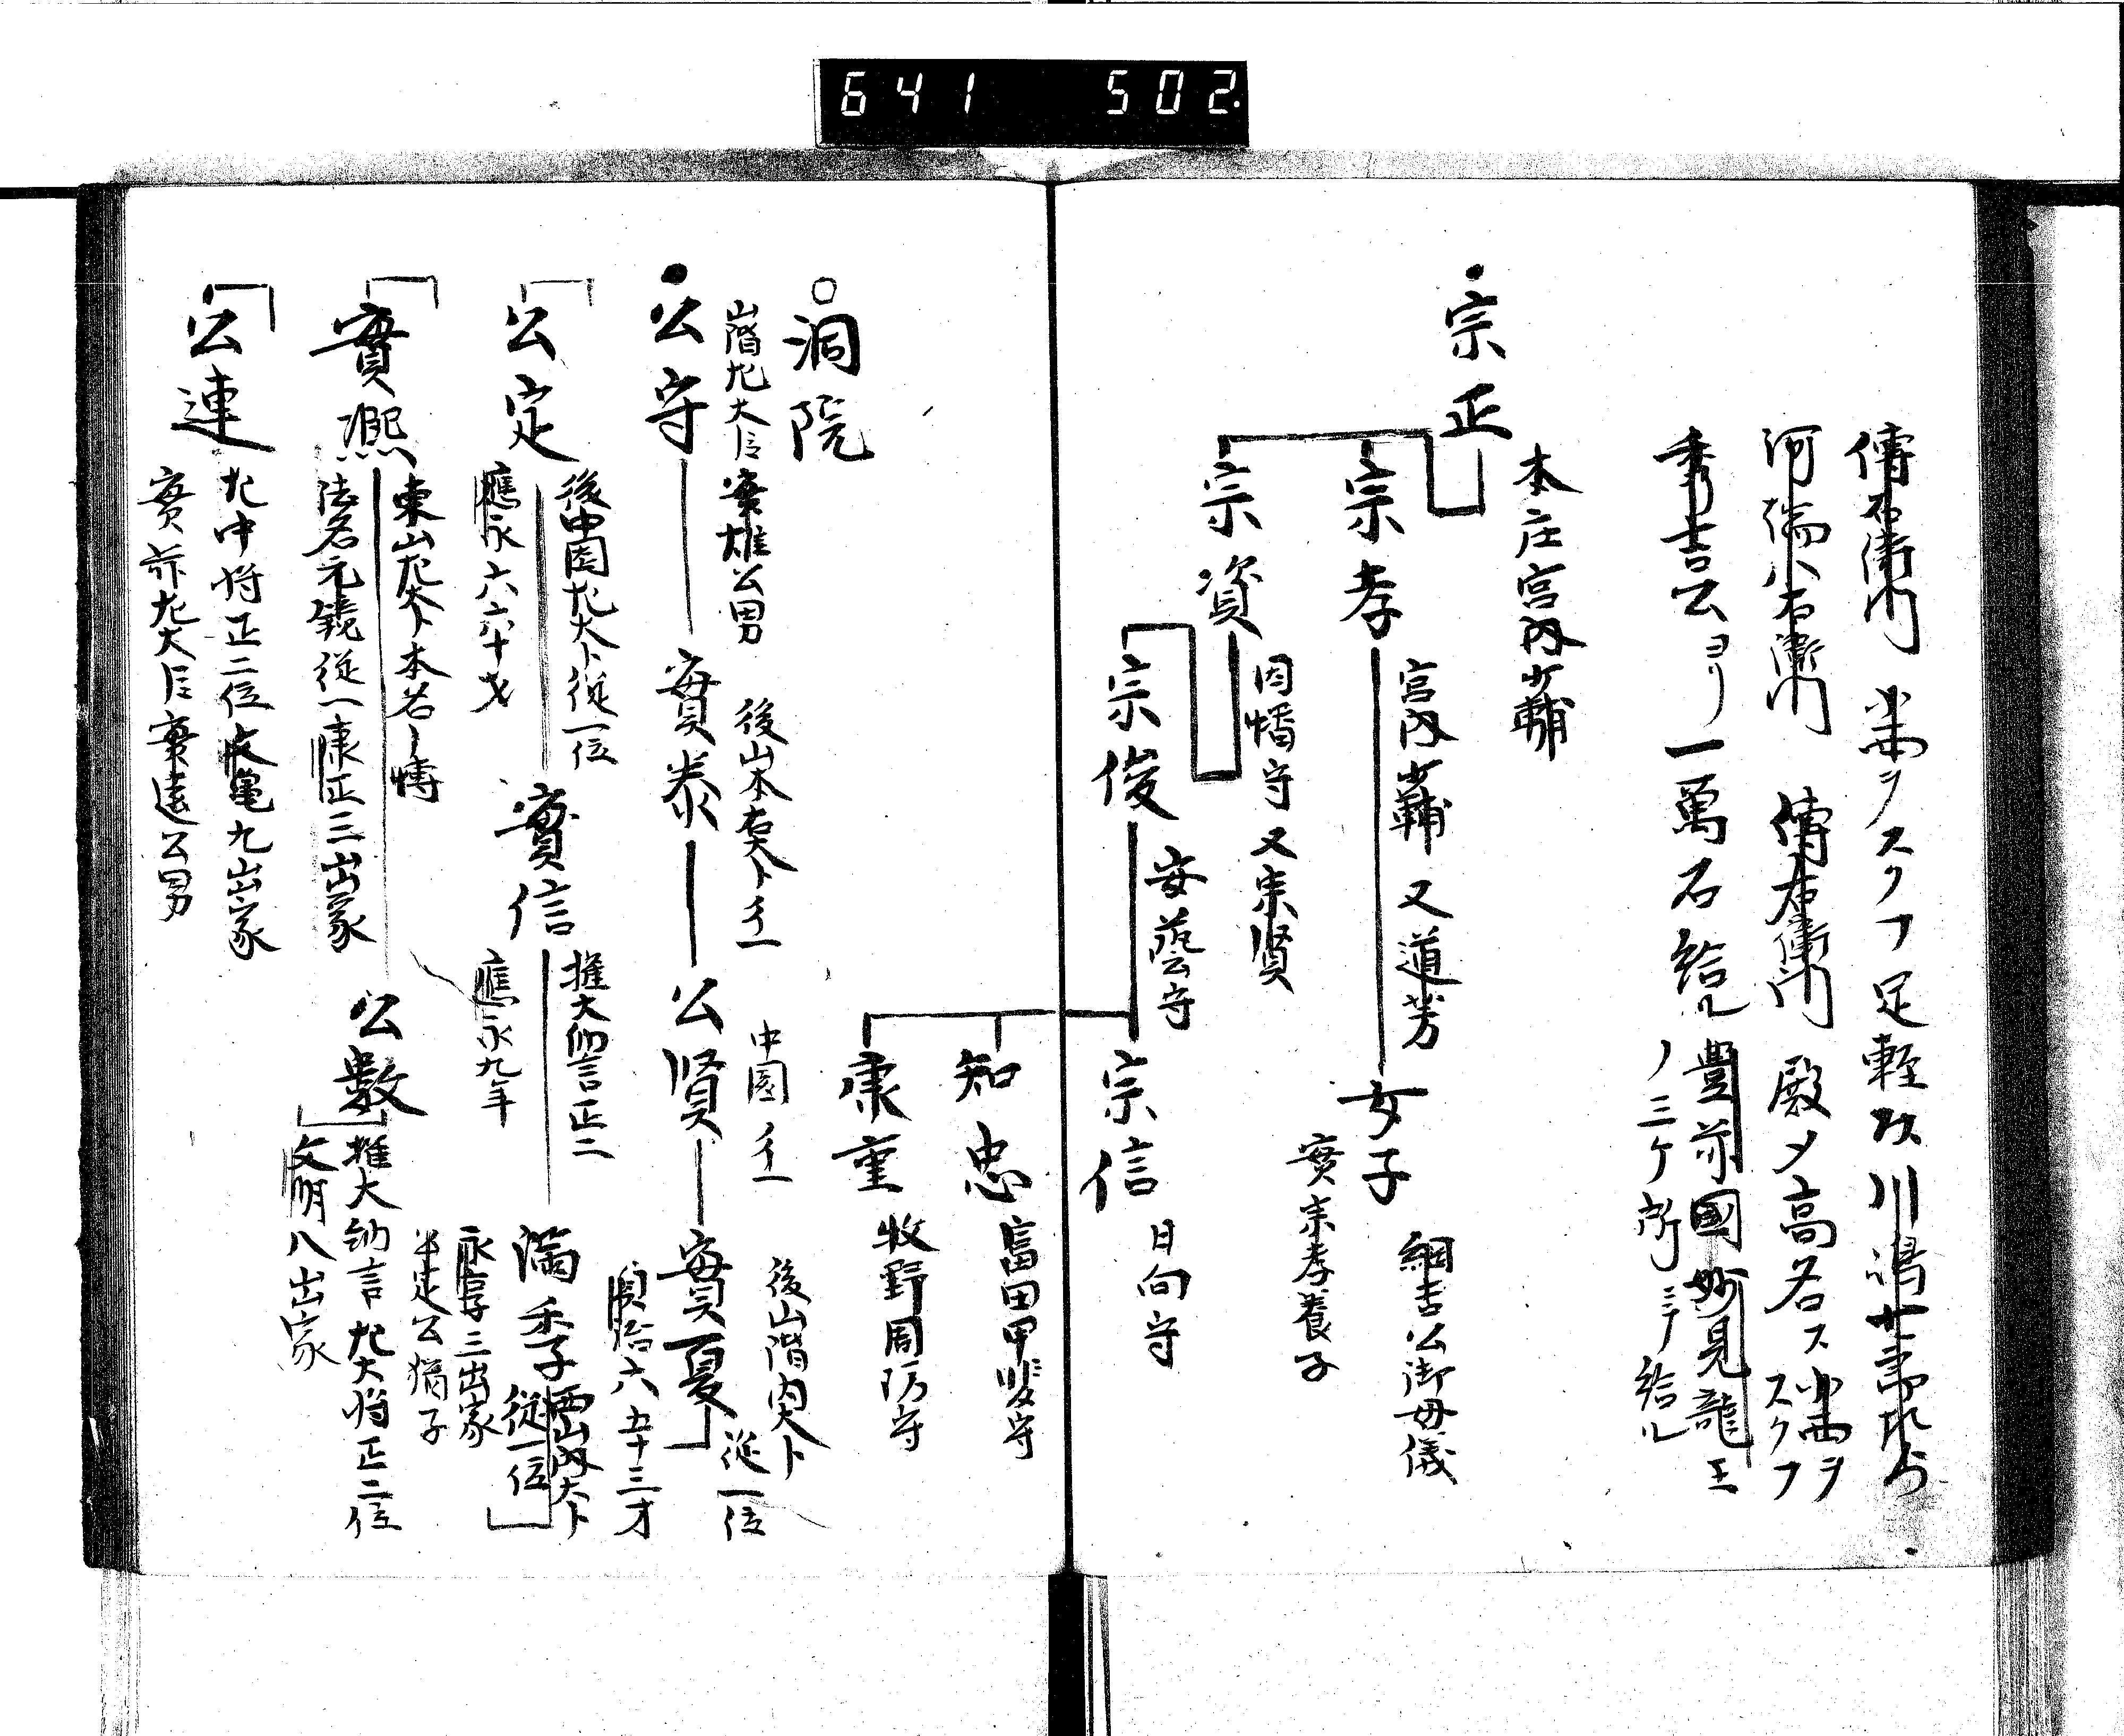 641 502
傳右衛門
ヲスクフ足輕
河端八右衛門 傳右衛門 殿メ高名ス
ヲスクフ
秀吉公ヨリ一萬石給ル 豊前國妙見龍王
ノ三ケ所ニテ給ル
宗正
本庄宮内少輔
宗孝
宮内少輔 又道芳
女子
綱吉公御母儀
實宗孝養子
宗資
因幡守 又宗賢
宗俊
安藝守
宗信
日向守
知忠
富田甲斐守
康重
牧野周防守
洞院
山階左大臣實雄公男
公守
實泰
後山本左大卜 従一
公賢
中園 従一
實夏
後山階内大卜 従一位
貞治六 五十三才
公定
後中園左大卜従一位
應永六 六十才
實信
權大納言正二
應永九年
滿季
西山内大卜
従一位
永享三出家
實熙
東山左大卜本名ノ博
法名元鏡従一康正三出家
公數
權大納言左大将正二位
文明八出家
公連
左中将正二位文亀九出家
實前左大臣實遠公男